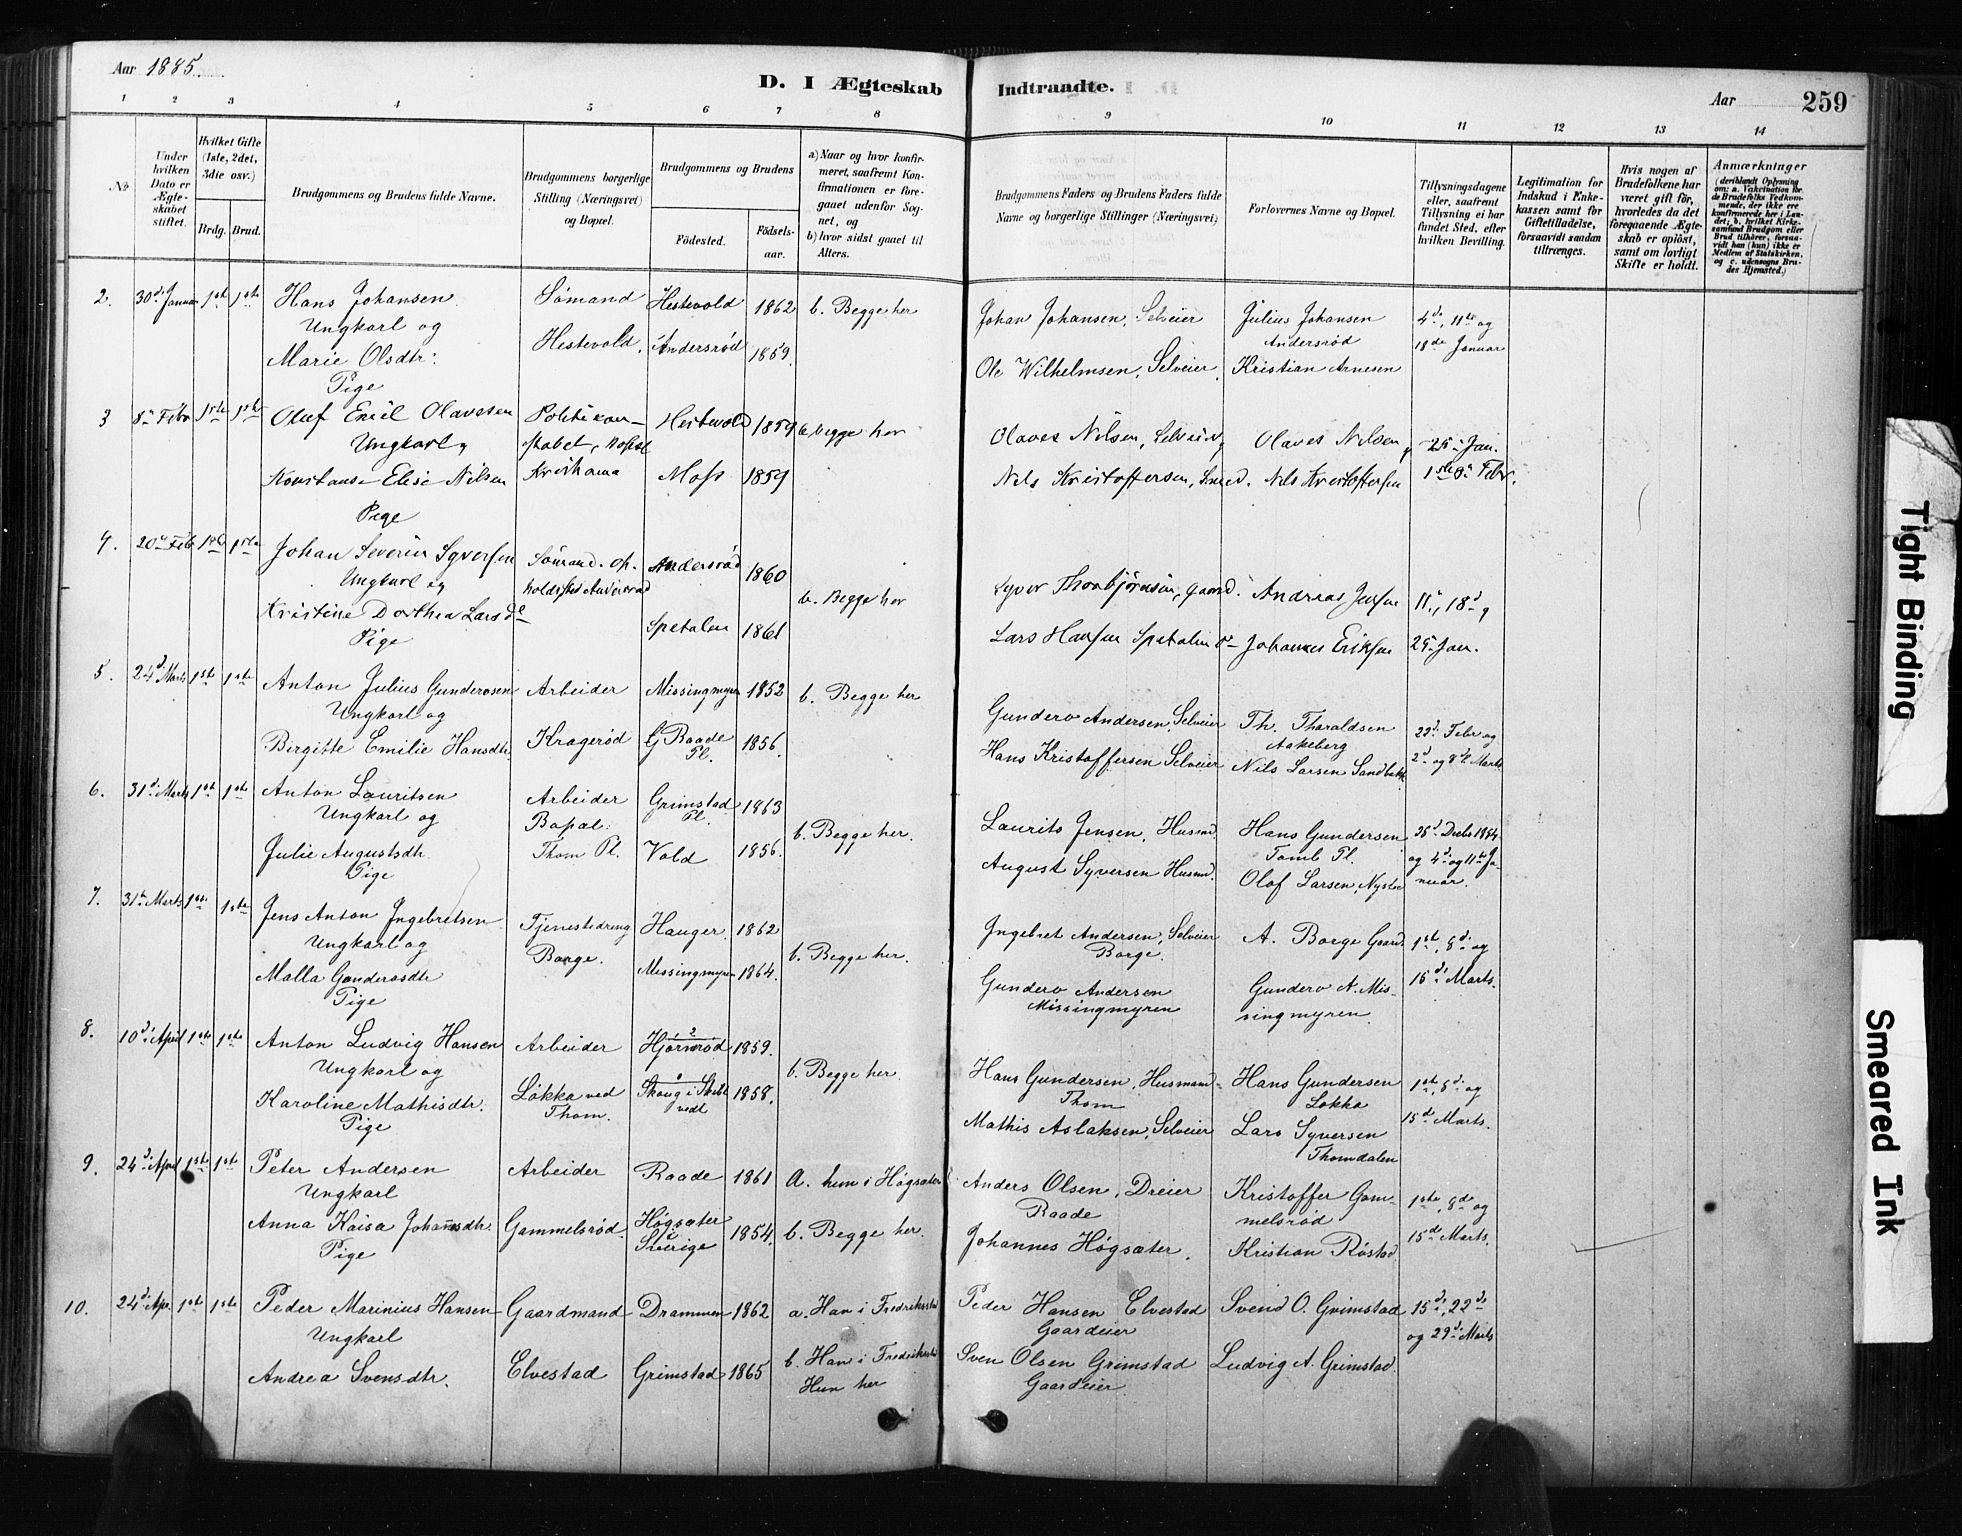 Aar 1885.
D. I Ægteskab Indtraadte.
Aar 259
1 2 3 4 5 6 7 8 9 10 11 12 13 14
No
Under hvilken Dato er Ægteskabet stiftet.
Hvilket Gifte (1ste, 2det, 3die osv.)
Brdg. Brud.
Brudgommens og Brudens fulde Navne.
Brudgommens borgerlige Stilling (Næringsvei) og Bopæl.
Brudgommens og Brudens
Fødested.
Fødselsaar.
a) Naar og hvor konfirmeret, saafremt Konfirmationen er foregaaet udenfor Sognet, og
b) hvor sidst gaaet til Alters.
Brudgommens Faders og Brudens Faders fulde Navne og borgerlige Stillinger (Næringsvei)
Forlovernes Navne og Bopæl.
Tillysningsdagene eller, saafremt Tillysning ei har fundet Sted, efter hvilken Bevilling.
Legitimation for Indskud i Enkekassen samt for Giftetilladelse, forsaavidt saadan tiltrænges.
Hvis nogen af Brudefolkene har været gift før, hvorledes da det foregaaende Ægteskab er opløst, samt om lovligt Skifte er holdt.
Anmærkninger
(deriblandt Oplysning om: a. Vakcination for de Brudefolks Vedkommende, der ikke ere konfirmerede her i Landet; b. hvilket Kirkesamfund Brudgom eller Brud tilhører, forsaavidt han (hun) ikke er Medlem af Statskirken, og c. udensogns Brudes Hjemsted.)
2. 30d Januar 1ste 1ste Hans Johansen Sømand Hestevold 1862 b. Begge her Johan Johansen, Selveier Julius Johansen 4d, 11te og
Ungkarl og Andersrød 18de Januar
Marie Olsdtr: Hestevold, Andersrød 1859. Ole Wilhelmsen, Selveier, Kristian Arnesen
Pige
3 8d Febr 1ste 1ste Olaf Emil Olavesen Politikon- Hestevold 1859 b. begge her Olaves Nilsen, Selveier, Olaves Nilsen, 25d Jan.
Ungkarl, stabel,
Konstanse Elise Nilsen Kristiania Moss 1859 Nils Kristoffersen, Nils Kristoffersen 1ste 8d Febr.
Pige
4. 20d Feb 1ste 1ste Johan Severin Syversen Sømand. op- Andersrød 1860 b. Begge her Syver Thorbjørnsen, Gaard. Andreas Jensen 11d, 18d,
Ungkarl og holdssted Andersrød
Kristine Dorthea Larsdr Spetalen 1861 Lars Hansen Spetalen Johannes Eriksen 25d Jan.
Pige
5. 24d Marts 1ste 1ste Anton Julius Gunderosen Arbeider Missingmyren 1852 b. Begge her Gundero Andersen, Selveier Th. Tharaldsen 22d Febr og
Ungkarl og Aakeberg
Birgitte Emilie Hansdtr. Kragerød Raade Pl. 1856. Hans Kristoffersen Selveier Nils Larsen Sandbakk 2d og 8d Marts
6. 31d Marts 1ste 1ste Anton Lauritsen Arbeider Grimstad Pl. 1863 b. Begge her. Laurits Jensen, Husmd. Hans Gundersen Decbr 1884
Ungkarl og Bopæl: Tomb Pl. og 4d og 11te Ja-
Julie Augustsdtr. Thom Pl. Vold 1856. August Syversen Husmd. Olof Larsen, Nysted nuar.
Pige
7. 31te Marts 1ste 1ste Jens Anton Ingebretsen Tjenestedreng Hauger 1862 b. Begge her. Ingebret Andersen, Selveier A. Borge Gaard 1ste, 8d og
Ungkarl og Borge. Borge.
Malla Gunderosdtr Missingmyren 1864. Gundero Andersen Gundero A. Mis- 15d Marts.
Pige Missingmyren singmyren
8. 10d April 1ste 1ste Anton Ludvig Hansen Arbeider Hjørnerød 1859. b. Begge her. Hans Gundersen, Husmand Hans Gundersen 1ste, 8d og
Ungkarl og Thom Løkka
Karoline Mathisdtr. Løkka ved Thom. Skaug i Skibtvedt 1858. Mathis Aslaksen, Selveier Lars Syversen 15d Marts.
Pige Thomdalen
9. 24d April 1ste 1ste Peter Andersen Arbeider Raade 1861 a. hun i Høgsæter Anders Olsen, Dreier Kristoffer Gam- 1ste, 8d og
Ungkarl Raade melsrød
Anna Kaisa Johannsdtr. Gammelsrød. Høgsæter i Sverige 1854. b. Begge her. Johannes Høgsæter. Kristian Røstad 15d Marts.
Pige
10. 24d Apr. 1ste 1ste Peder Marinius Hansen Gaardmand Drammen 1862 a. Han i Fredriksstad Peder Hansen Elvestad Svend O. Grimstad 15d, 22d
Ungkarl Gaardeier og 29d Marts
Andrea Svensdtr. Elvestad Grimstad 1865 b. Han i Fredriksstad Sven Olsen Grimstad Ludvig A. Grimstad
Hun her Gaardeier.
Tight Binding
Smeared Ink